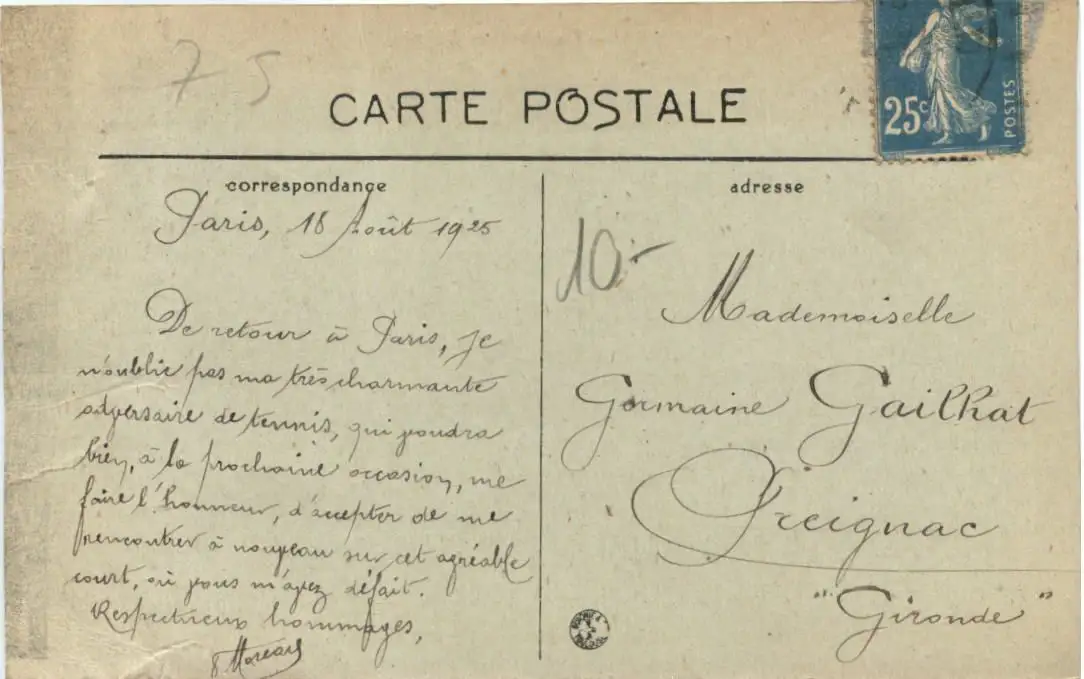 75
CARTE POSTALE
25c
POSTES
correspondance
Paris, 18 Août 1925
De retour à Paris, je
n'oublie pas ma très charmante
adversaire de tennis, qui voudra
bien, à la prochaine occasion, me
faire l'honneur, d'accepter de me
rencontrer à nouveau sur cet agréable
court, où vous m'avez défait.
Respectueux hommages,
adresse
10.-
Mademoiselle
Germaine Gailhat
Preignac
"Gironde"